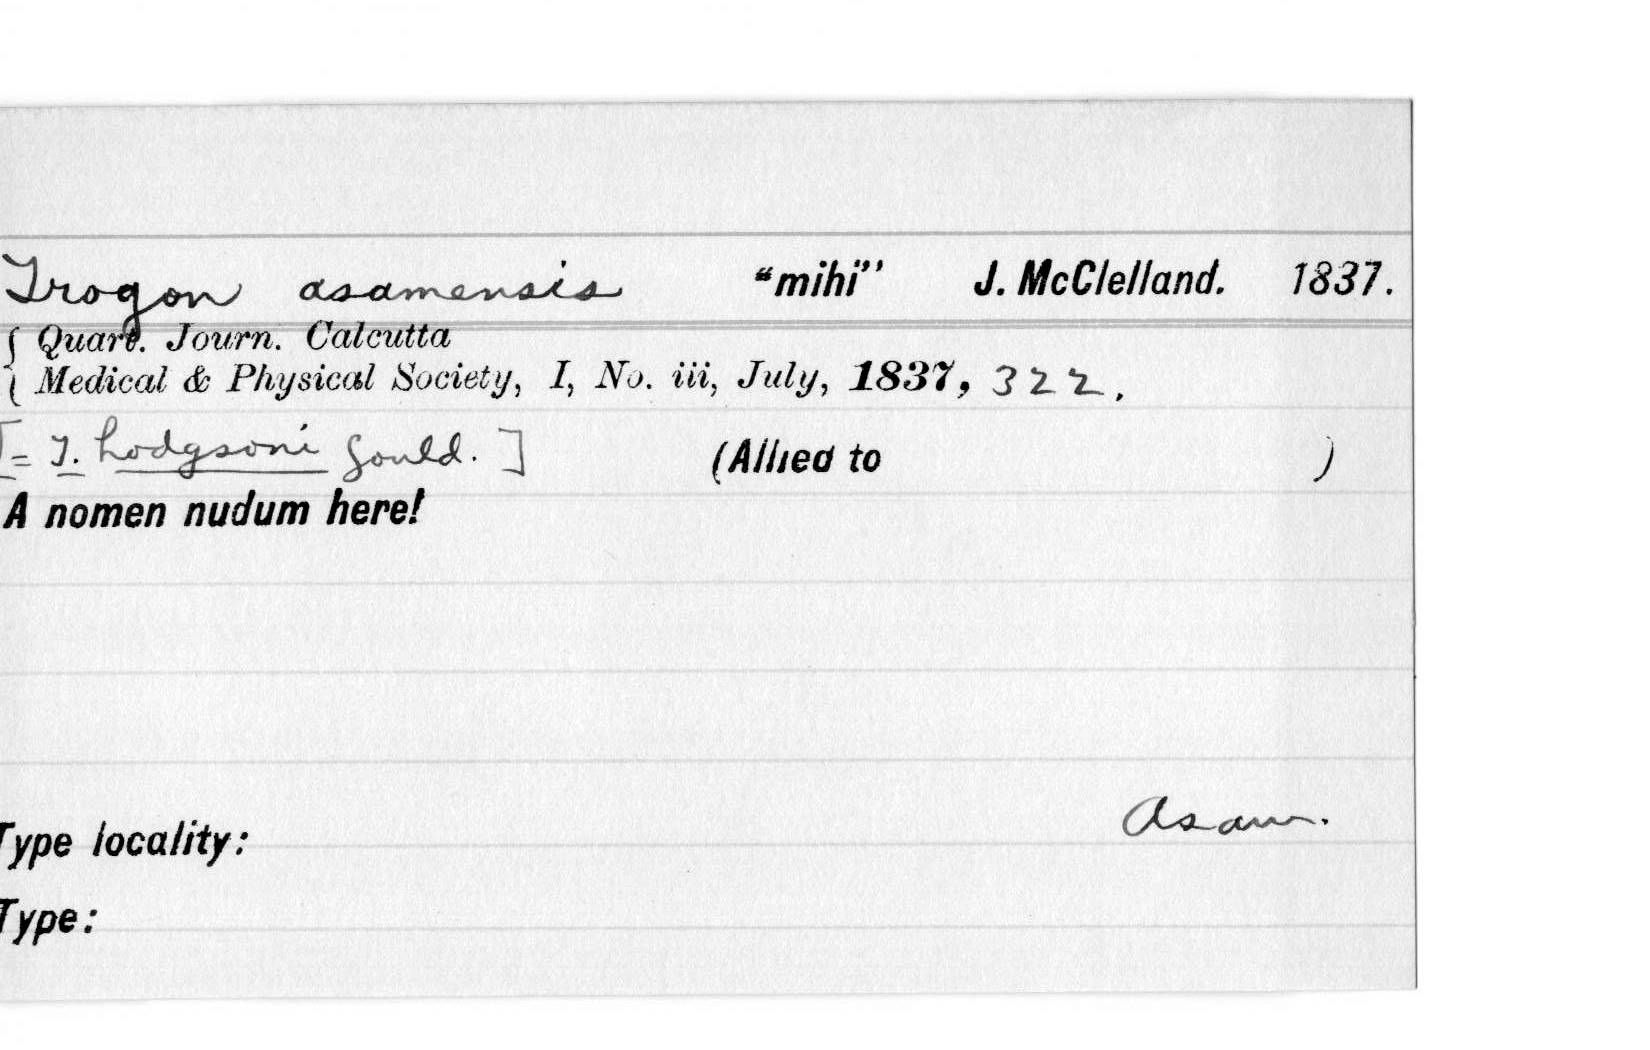 Trogon asamensis "mihi" J. McClelland. 1837.
{ Quart. Journ. Calcutta
Medical & Physical Society, I, No. iii, July, 1837, 322.
[= T. hodgsoni Gould.] (Allied to )
A nomen nudum here!
Type locality: Asam.
Type: